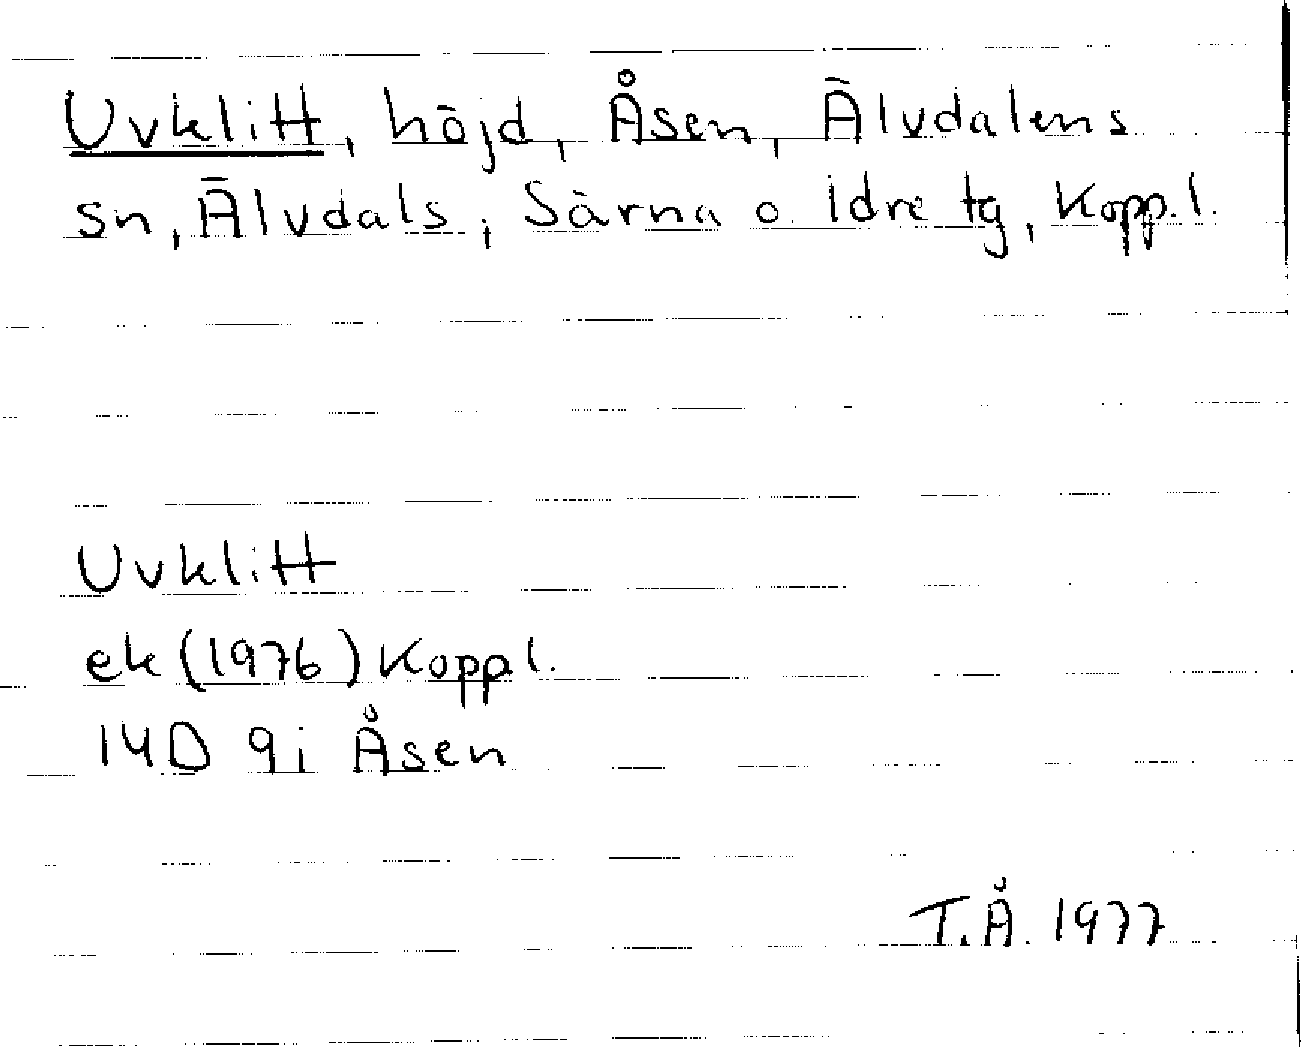 Uvklitt, höjd, Åsen, Älvdalens
sn, Älvdals, Särna o. Idre tg, Kopp.l.
Uvklitt
ek (1976) Koppl.
14D 9i Åsen
T.Å. 1977